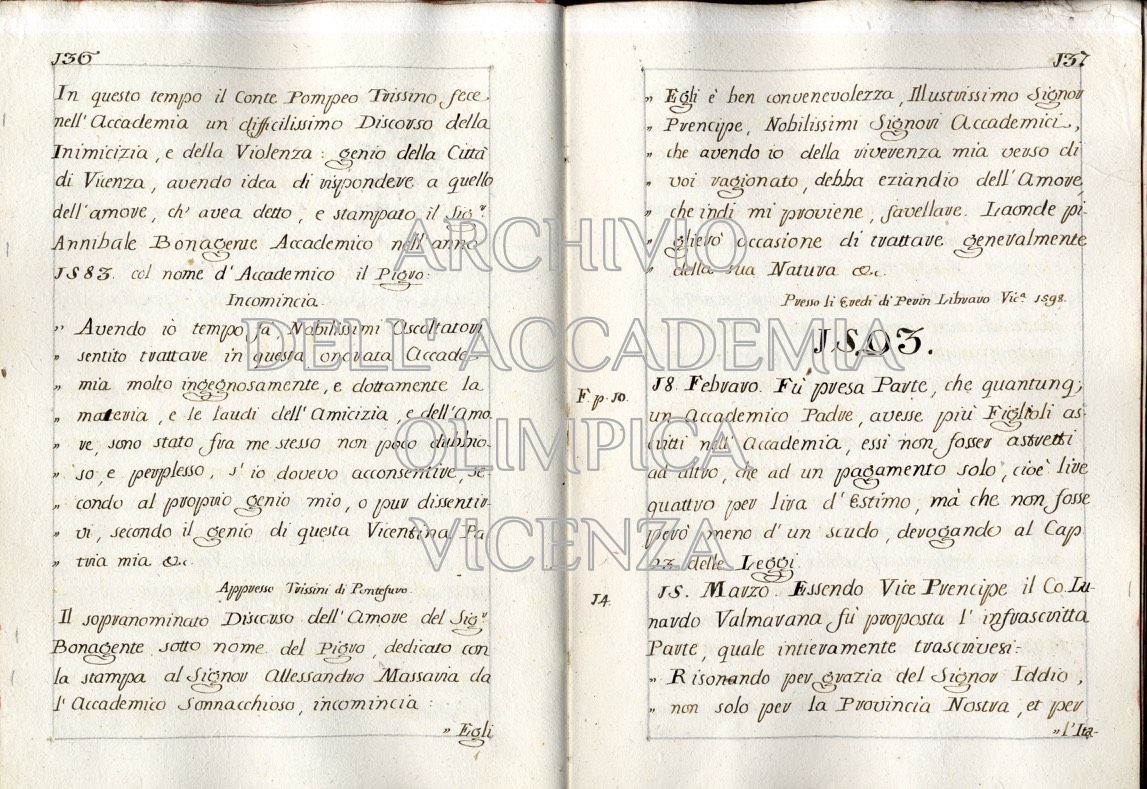 136
In questo tempo il Conte Pompeo Trissino fece
nell'Accademia un difficilissimo Discorso della
Inimicizia, e della Violenza: genio della Città
di Vicenza, avendo idea di rispondere a quello
dell'amore, ch'avea detto, e stampato il Sig.r
Annibale Bonagente Accademico nell'anno
1583. col nome d'Accademico il Pigro:
Incomincia.
" Avendo iò tempo fa Nobilissimi Ascoltatori
" sentito trattare in questa onorata Accade-
" mia molto ingegnosamente, e dottamente la
" materia, e le laudi dell'Amicizia, e dell'Amo
" re, sono stato fra me stesso non poco dubbio-
" so, e perplesso, s'io dovevo acconsentire, se-
" condo al proprio genio mio, o pur dissentir-
" vi, secondo il genio di questa Vicentina Pa
" tria mia &c.
Appresso Trissini di Pontefuro
Il sopranominato Discorso dell'Amore del Sig.r
Bonagente sotto nome del Pigro, dedicato con
la stampa al Signor Allessandro Massaria da
l'Accademico Sonnacchioso, incomincia:
" Egli
137
" Egli è ben convenevolezza, Illustrissimo Signor
" Prencipe, Nobilissimi Signori Accademici,
" che avendo io della riverenza mia verso di
" voi ragionato, debba eziandio dell'Amore,
" che indi mi proviene, favellare. Laonde pi-
" glierò occasione di trattare generalmente
" della sua Natura &c.
Presso li Eredi di Perin Libraro Vic.a 1598.
1S.03.
F. p. 10.
18 Febraro. Fù presa Parte, che quantunq;
un Accademico Padre, avesse più Figlioli as-
critti nell'Accademia, essi non fosser astretti
ad altro, che ad un pagamento solo, cioè lire
quattro per lira d'Estimo, mà che non fosse
però meno d'un scudo, derogando al Cap
23 delle Leggi.
14.
15. Marzo. Essendo Vice Prencipe il Co. Lu-
nardo Valmarana fù proposta l'infrascritta
Parte, quale intieramente trascrivesi:
" Risonando per grazia del Signor Iddio,
" non solo per la Provincia Nostra, et per
" l'Ita-
ARCHIVIO
DELL'ACCADEMIA
OLIMPICA
VICENZA